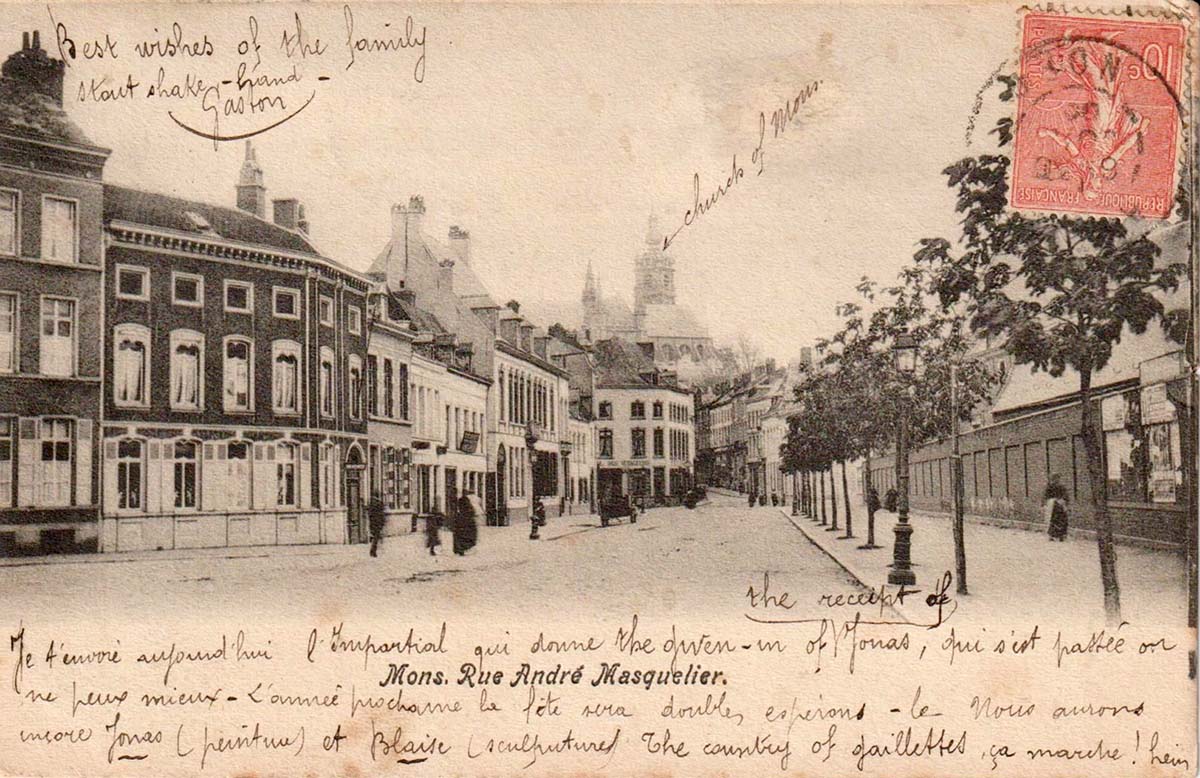 Best wishes of the family
stout shake-hand-
Gaston
church of Mons.
10c
POSTES
REPUBLIQUE FRANÇAISE
the receipt of
Je t'envoie aujourd'hui l'Impartial qui donne the given-in of Jonas, qui s'est passée on
Mons. Rue André Masquelier.
ne peux mieux - L'année prochaine la fête sera double, espérons-le Nous aurons
encore Jonas (peinture) et Blaise (sculpture) The country of gaillettes, ça marche! hein